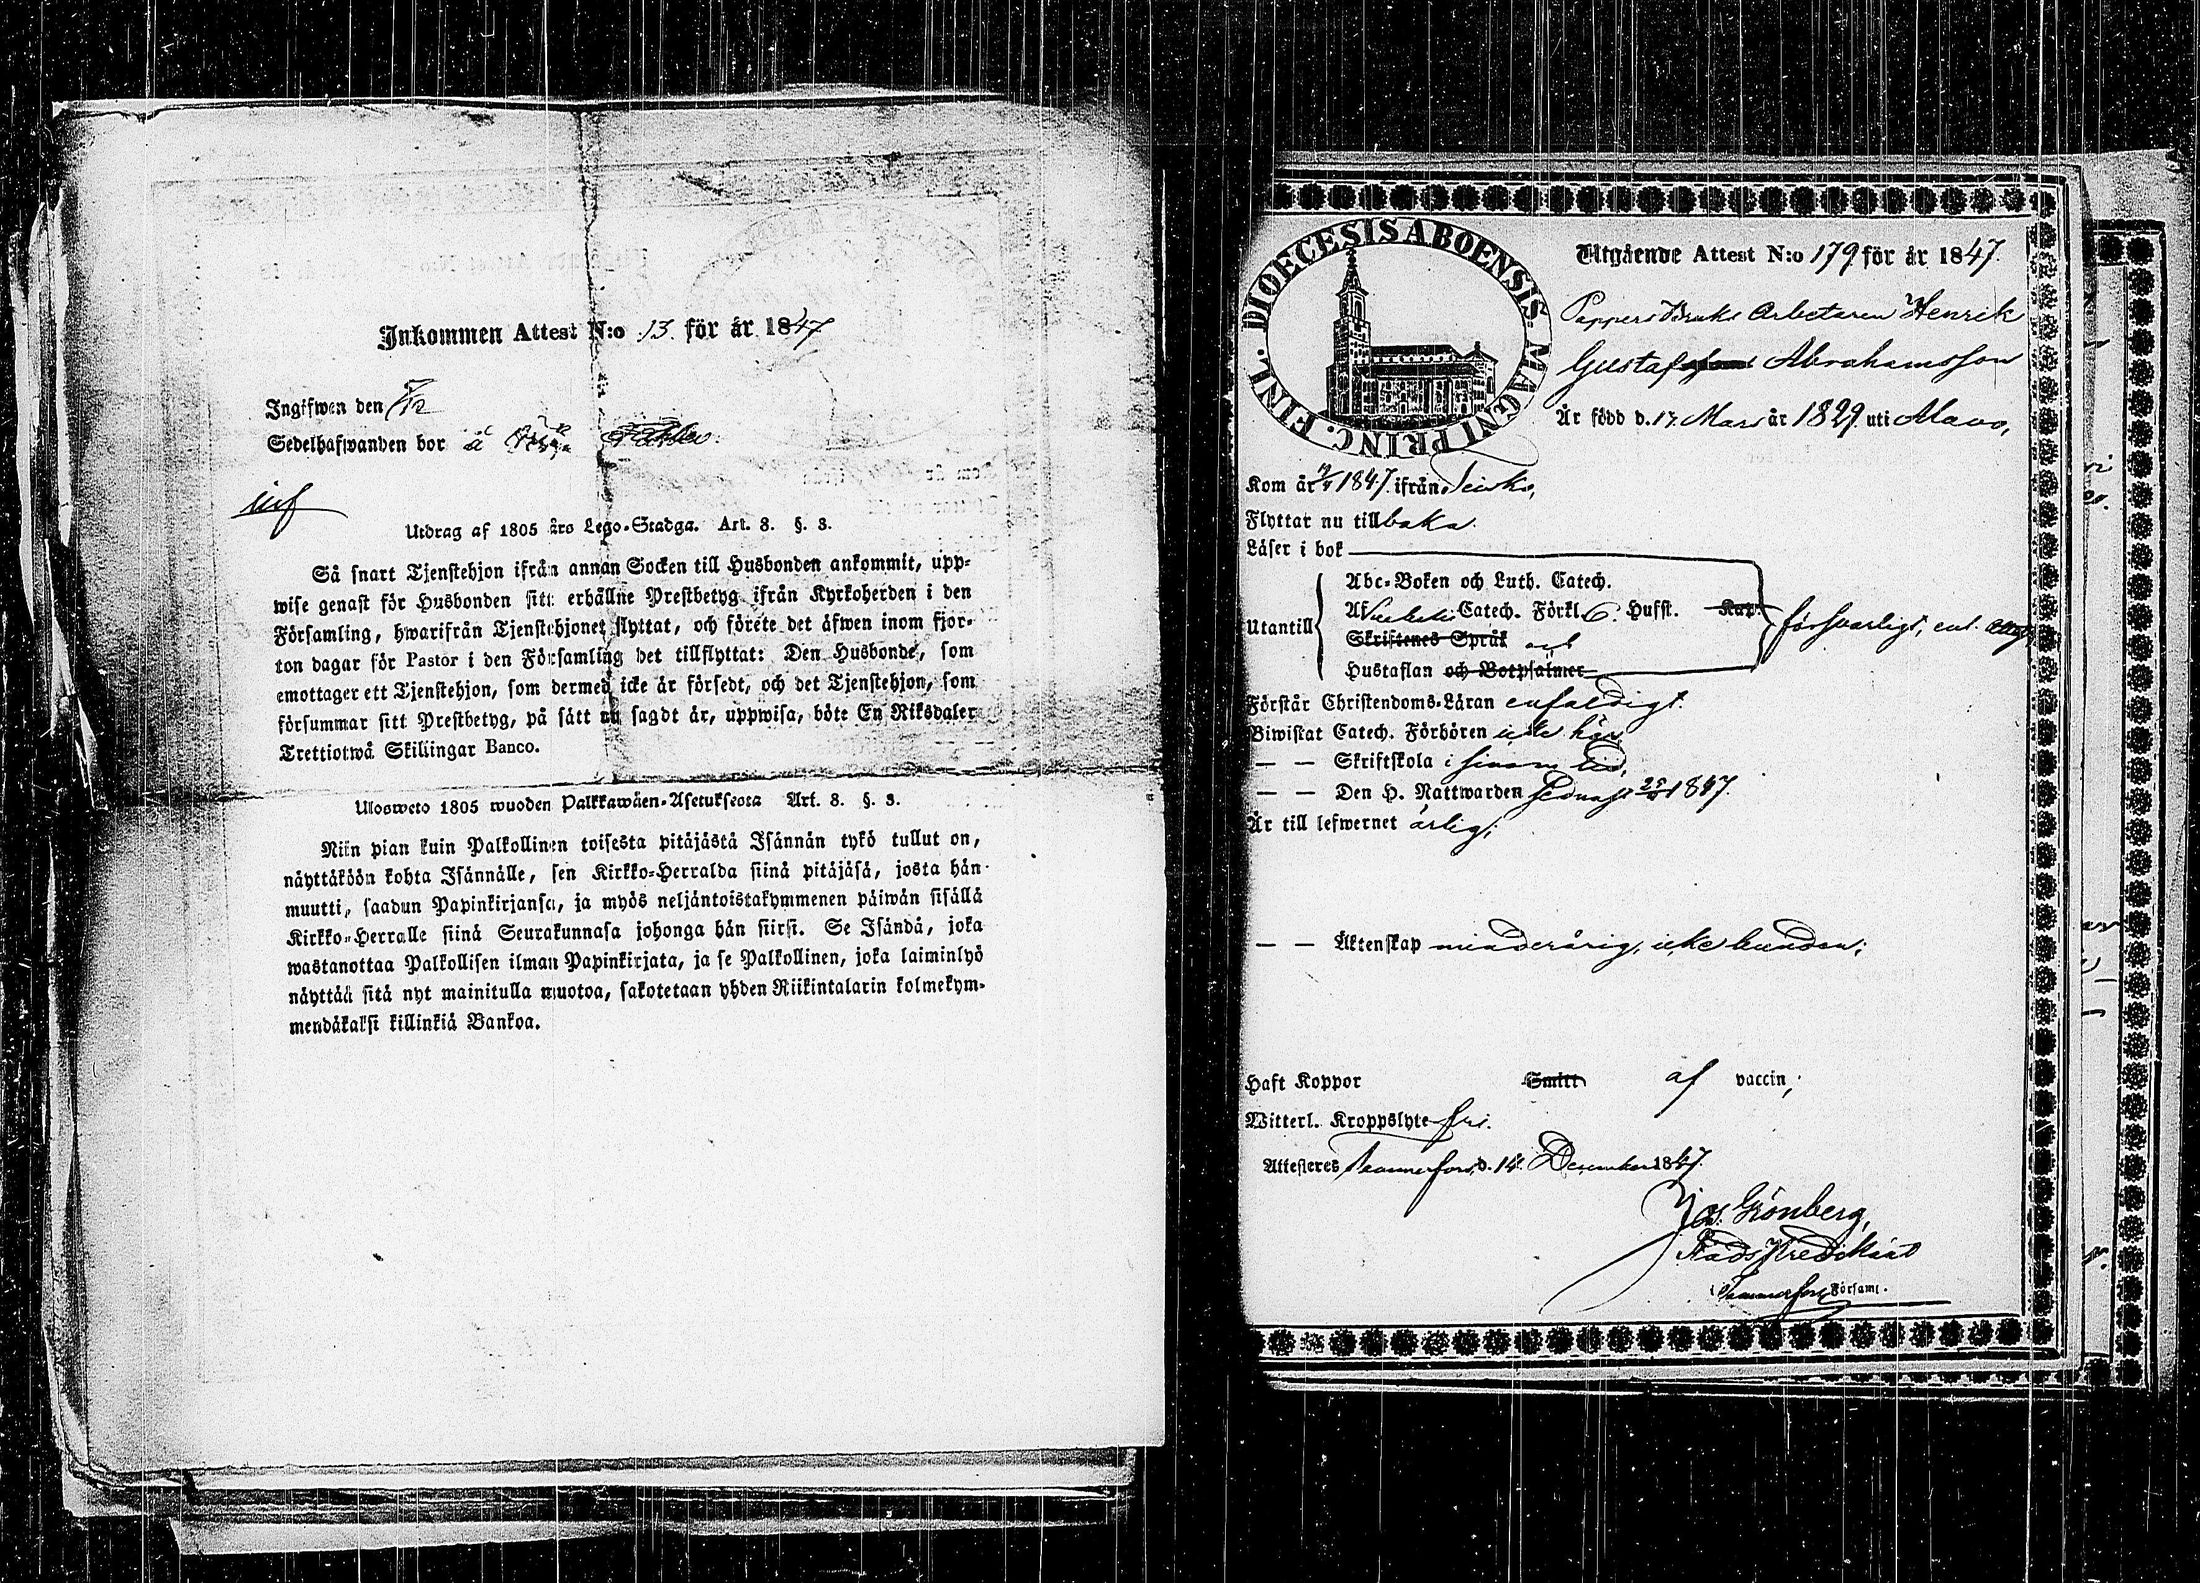 Inkommen Attest N:o 13. för år 1847
Ingifwen den
Sedelhafwanden bor å
inf
Utdrag af 1805 års Lego-Stadga. Art. 8. §. 3.
Så snart Tjenstehjon ifrån annan Socken till Husbonden ankommit, upp-
wise genast för Husbonden sitt erhållne Prestbetyg ifrån Kyrkoherden i den
Församling, hwarifrån Tjenstehjonet flyttat, och förete det äfwen inom fjor-
ton dagar för Pastor i den Församling det tillflyttat: Den Husbonde, som
emottager ett Tjenstehjon, som dermed icke är försedt, och det Tjenstehjon, som
försummar sitt Prestbetyg, på sätt nu sagdt är, uppwisa, böte En Riksdaler
Trettiotwå Skillingar Banco.
Ulosweto 1805 wuoden Palkkawäen-Asetuksesta Art. 8. §. 3.
Niin pian kuin Palkollinen toisesta pitäjästä Isännän tykö tullut on,
näyttäköön kohta Isännälle, sen Kirkko-Herralda siinä pitäjäsä, josta hän
muutti, saadun Papinkirjansa, ja myös neljäntoistakymmenen päiwän sisällä
Kirkko-Herralle siinä Seurakunnasa johonga hän siirsi. Se Isändä, joka
wastanottaa Palkollisen ilman Papinkirjata, ja se Palkollinen, joka laiminlyö
näyttää sitä nyt mainitulla muotoa, sakotetaan yhden Riikintalarin kolmekym-
mendäkaksi killinkiä Bankoa.
DIOECESIS ABOENSIS. MAGNI PRINC. FINL.
Utgående Attest N:o 179 för år 1847.
Pappers Bruks Arbetaren Henrik
Gustaf Abrahamsson
Är född d. 17. Mars år 1829 uti Alavo,
Kom år 1847. ifrån Teisko,
Flyttar nu tillbaka.
Läser i bok
Utantill
Abc-Boken och Luth. Catech.
Af Catech. Förkl. 6. Hufst. Kap.
Skriftenes Språk och
Hustaflan och Botpsalmer
försvarligt, enl.
Förstår Christendoms-Läran enfaldigt.
Biwistat Catech. Förhören icke här,
— — Skriftskola i sinom tid,
— — Den H. Nattwarden sednast 1847.
Är till lefwernet ärlig;
— — Äktenskap minderårig, icke bunden;
Haft Koppor Smitt af vaccin;
Witterl. Kroppslyte fri.
Attesteres Tammerfors, d. 14. December 1847.
Grönberg,
StadsPredikant
i Tammerfors Församl.